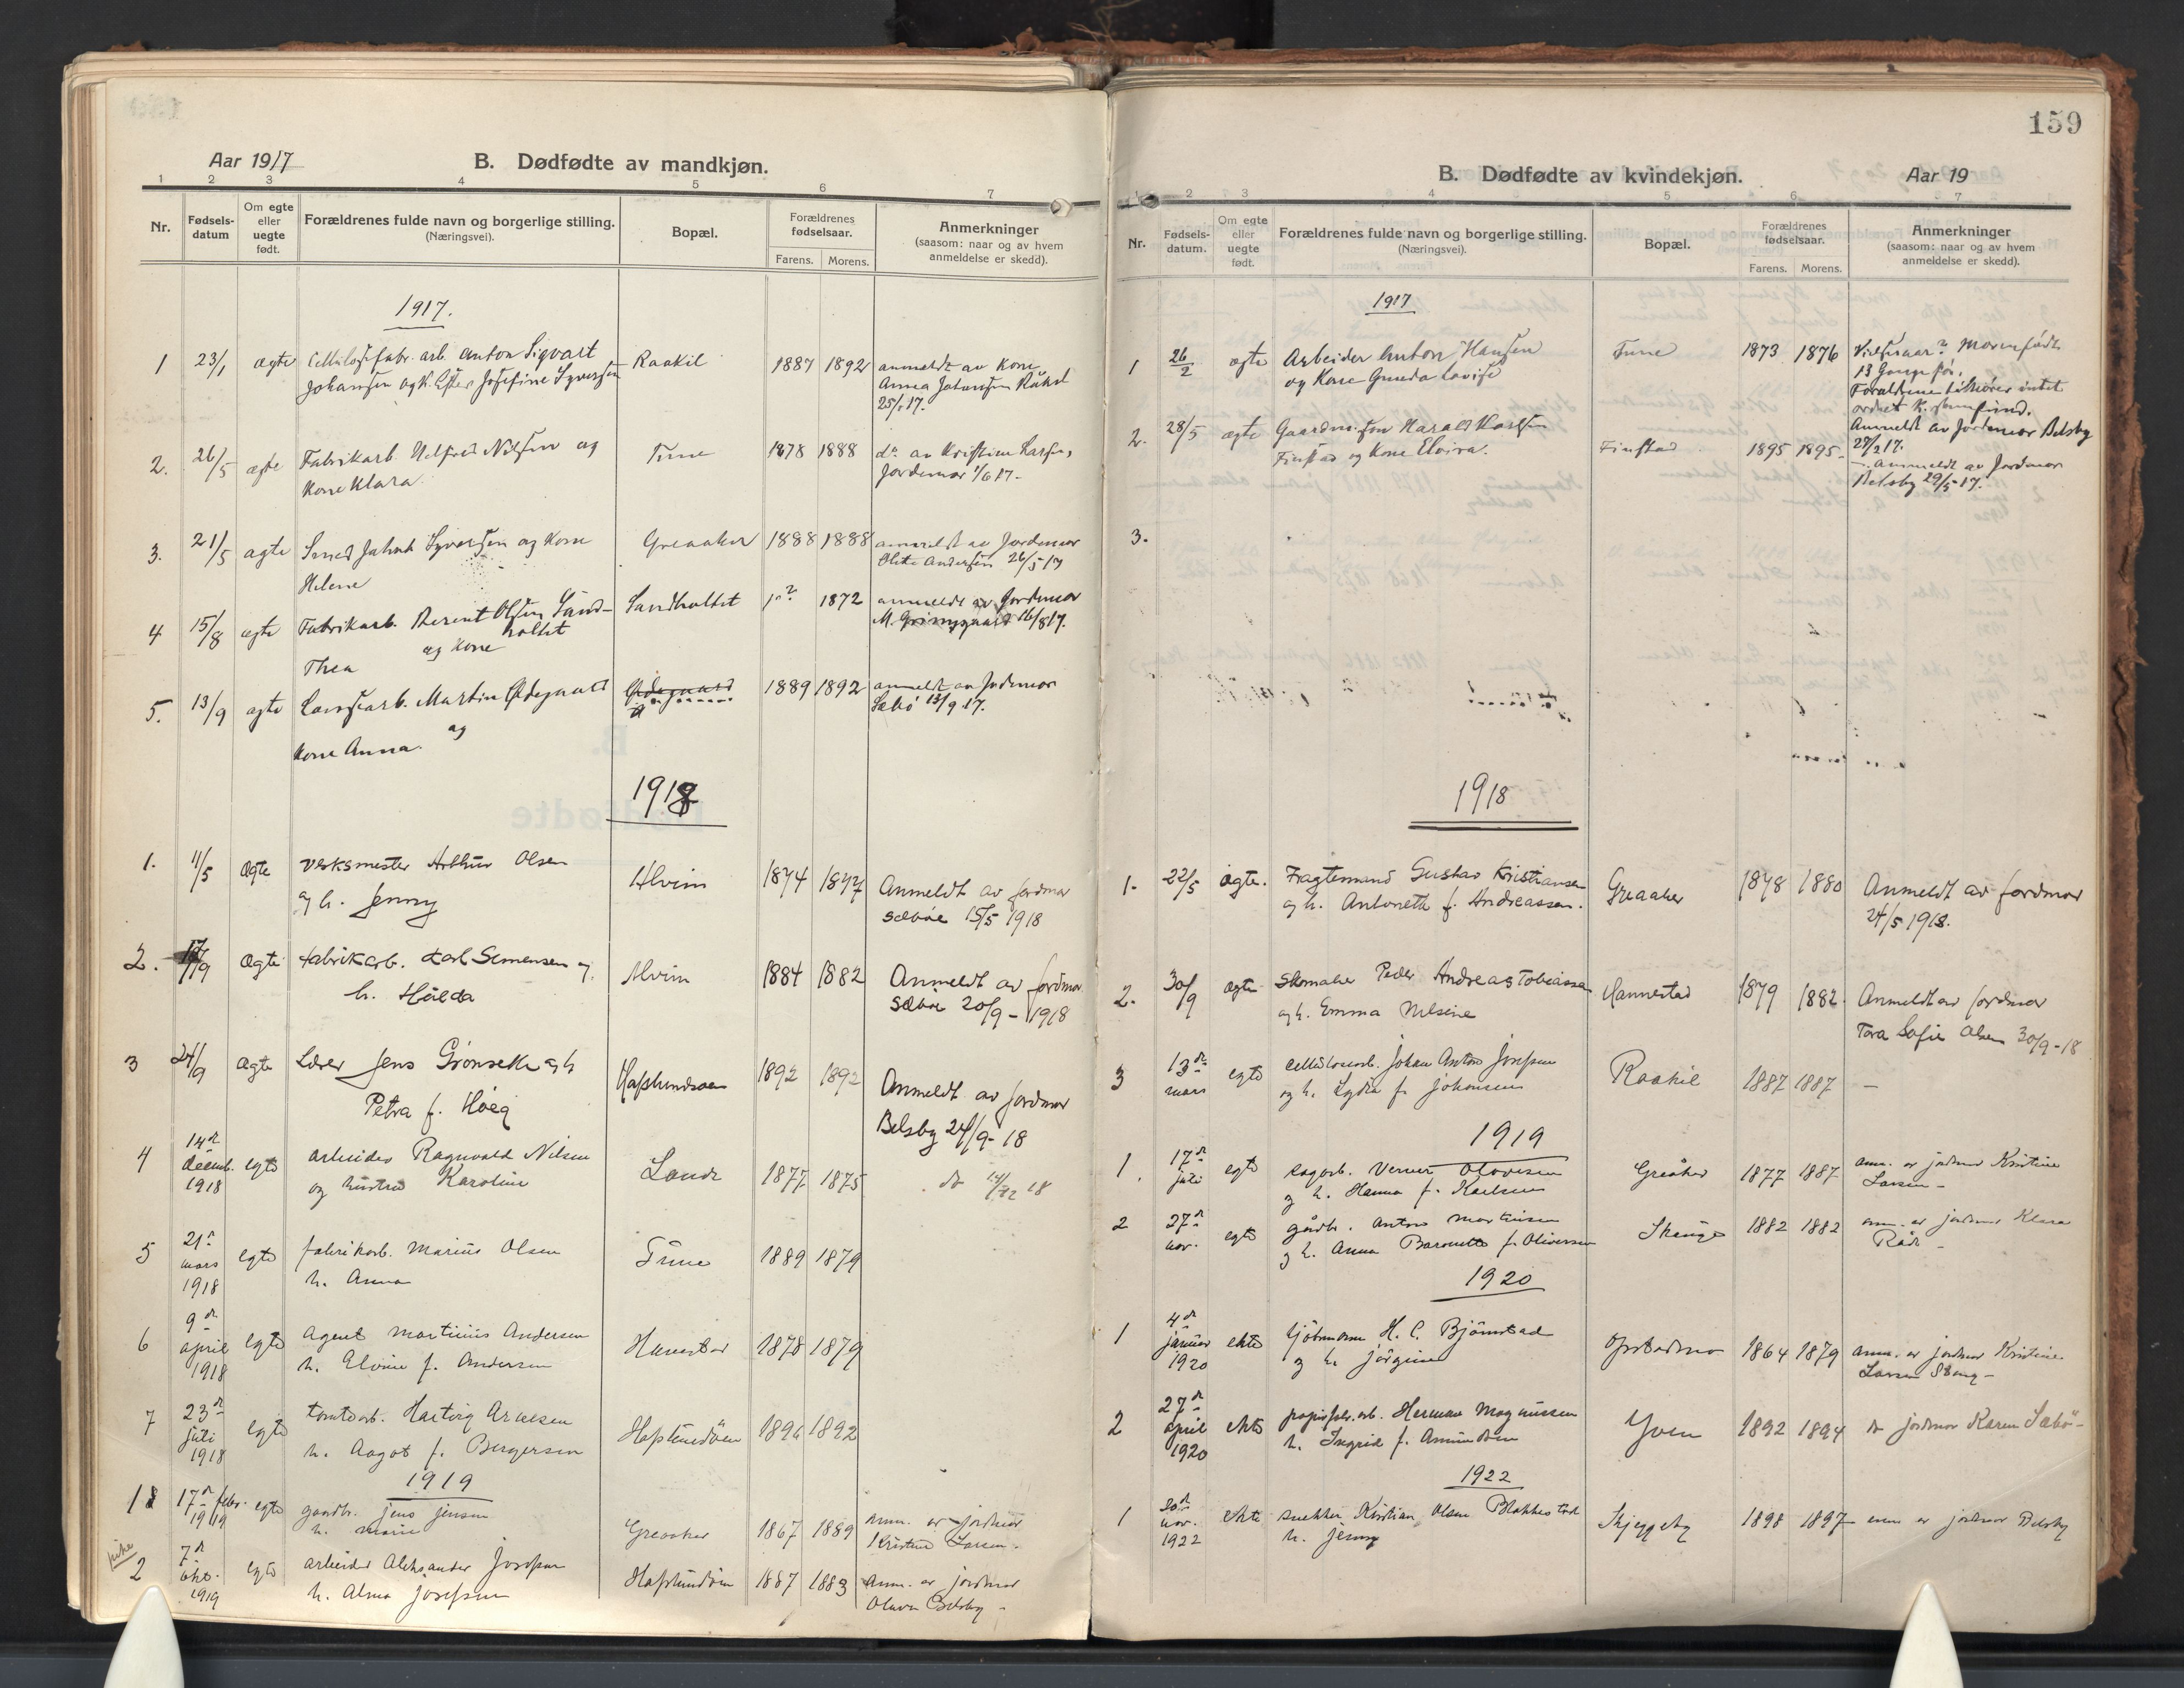 Aar 1917
B. Dødfødte av mandkjøn.
1 2 3 4 5 6 7
Nr.
Fødsels-
datum
Om egte
eller
uegte
født.
Forældrenes fulde navn og borgerlige stilling.
(Næringsvei).
Bopæl.
Forældrenes
fødselsaar.
Farens. Morens.
Anmerkninger
(saasom: naar og av hvem
anmeldelse er skedd).
1917.
1 23/1 ægte Cellulosefabr. arb. Anton Sigvart Raakil 1887 1892 anmeldt av Kone
Johansen og K. Ester Josefine Syversen Anna Johansen Råkil
25/1 17.
2. 26/5 ægte Fabrikarb. Nilsen og Tune 1878 1888 do av Kristine Larsen,
Kone Klara. Jordemor 1/6 17.
3. 21/5 ægte Smed Syversen og Kone Greaaker 1888 1888 anmeldt av Jordemor
Helene Andersen 26/5 17
4 15/8 ægte Fabrikarb. Berent Olsen Sand- Sandholtet 1872 anmeldt av Jordemor
holtet M. Grimsgaard 16/8 17.
og Kone
Thea
5. 13/9 ægte Martin Ødegaard Ødegaard 1889 1892 anmeldt av Jordemor
og Sæbö 13/9 17.
Kone Anna.
1918
1. 11/5 Ægte Verksmester Arthur Olsen Alvim 1874 1877 Anmeldt av jordmor
og h. Jenny Sæbøe 15/5 1918
2. 17/9 Ægte Fabrikarb. Karl Simensen og Alvim 1884 1882 Anmeldt av jordmor
h. Hulda Sæbøe 20/9 - 1918
3 24/9 Ægte Lærer Jens Grønseth og h Hafslundsøen 1892 1892 Anmeldt av jordmor
Petra f. Høeg Belsby 24/9 - 18
4 14de
decemb. egte arbeider Ragnvald Nilsen Lande 1877 1875 do 14/12 18
1918 og hustru Karoline
5 21de
mars egte fabrikarb. Marius Olsen Tune 1889 1879
1918 h. Anna
6 9de
april egte Agent Martinius Andersen Hanestad 1878 1879
1918 h. Elvine f. Andersen
7 23de
juli egte tomtearb. Hartvig Arnesen Hafslundöen 1896 1892
1918 h. Aagot f. Bergersen
1919
1 17de febr. egte gaardbr. Jens Jensen Greaaker 1867 1889 anm. av jordmor
1919 h. Marie Kristine Larsen.
pike
2 7de
okt. egte arbeider Aleksander Josefsen Hafslundöen 1887 1883 Anm. av jordmor
1919 h. Alma Josefsen Olava Belsby -
159
B. Dødfødte av kvindekjøn.
Aar 19
1 2 3 4 5 6 7
Nr.
Fødsels-
datum.
Om egte
eller
uegte
født.
Forældrenes fulde navn og borgerlige stilling.
(Næringsvei).
Bopæl.
Forældrenes
fødselsaar.
Farens. Morens.
Anmerkninger
(saasom: naar og av hvem
anmeldelse er skedd).
1917
1 26/2 ægte Arbeider Anton Hansen Tune 1873 1876 Vielsesaar? Moren født
og Kone Gunda Lovise 13 Gange før.
Forældrene tilhører intet
ordnet K. samfund.
Anmeldt av Jordemor Belsby
27/2 17.
2. 28/5 ægte Harald Karlsen Finstad 1895 1895 Anmeldt av Jordmor
Finstad og Kone Elvira. Belsby 29/5 17.
3.
1918
1. 22/5 ægte. Fragtemand Gustav Kristiansen Greaaker 1878 1880 Anmeldt av jordmor
og h. Antonette f. Andreassen. 24/5 1918.
2. 30/9 ægte Skomaker Peder Andreas Tobiassen Hannestad 1879 1882. Anmeldt av jordmor
og h. Emma Nilsine Tora Sofie Olsen 30/9 - 18
3 13de
mars egte cellulosearb. Johan Anton Josefsen Raakil 1887 1887 —
og h. Lydia f. Johansen
1919
1. 17de
juli egte Verner Olavesen Greåker 1877 1887 anm. av jordmor Kristine
og h. Hanna f. Karlsen Larsen -
2 27de
nov. egte gårdbr. Anton Martinsen 1882 1882 anm. av jordmor Klara
og h. Anna f. Oliversen Råde -
1920
1 4de
januar ekte H. C. Björnstad Opstadmo 1864 1879 anm. av jordmor Kristine
1920 og h. Jörgine Larsen
2 27de
april ekte papirfabr. arb. Herman Magnussen Yven 1892 1894 do jordmor Karen Sæbö -
1920 h. Ingrid f. Amundsen
1922
1 30de
nov. ekte snekker Kristian Olsen Blakkestad Skjeggeby 1898 1897 anm av jordmor Belsby
1922 h. Jenny